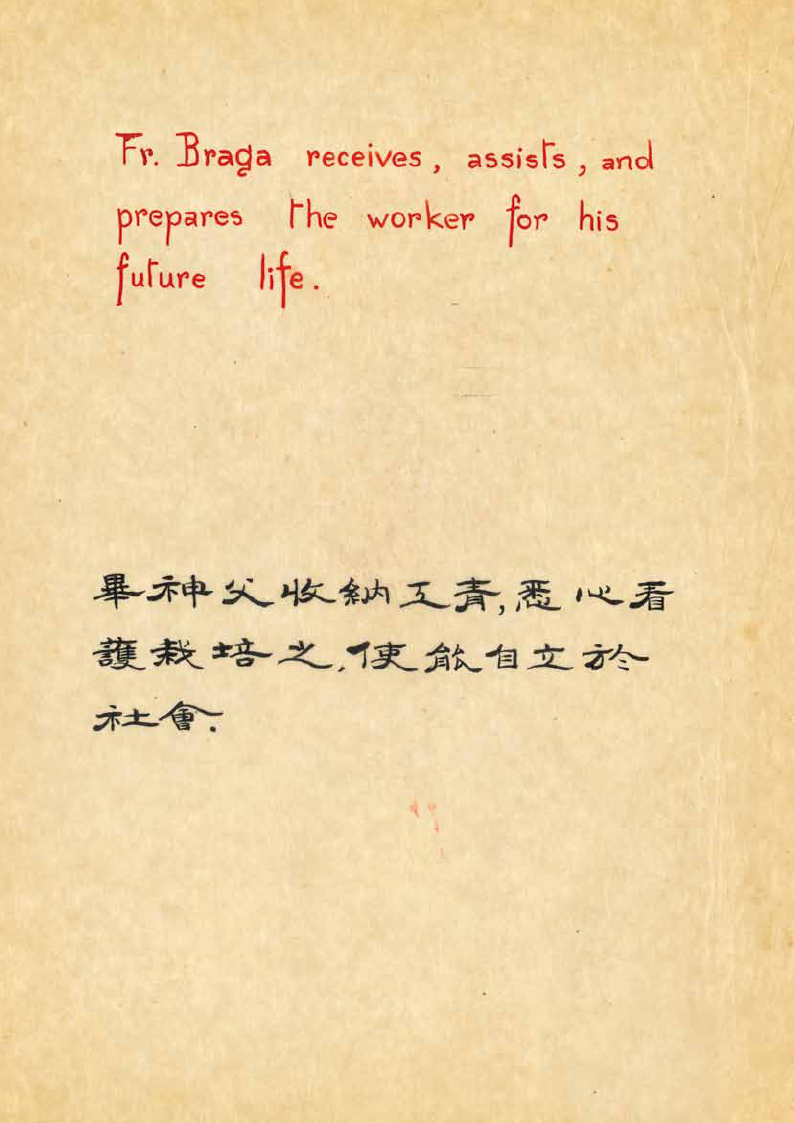 Fr. Braga receives, assists, and
prepares the worker for his
future life.
畢神父收納工青,悉心看
護栽培之,使能自立於
社會.